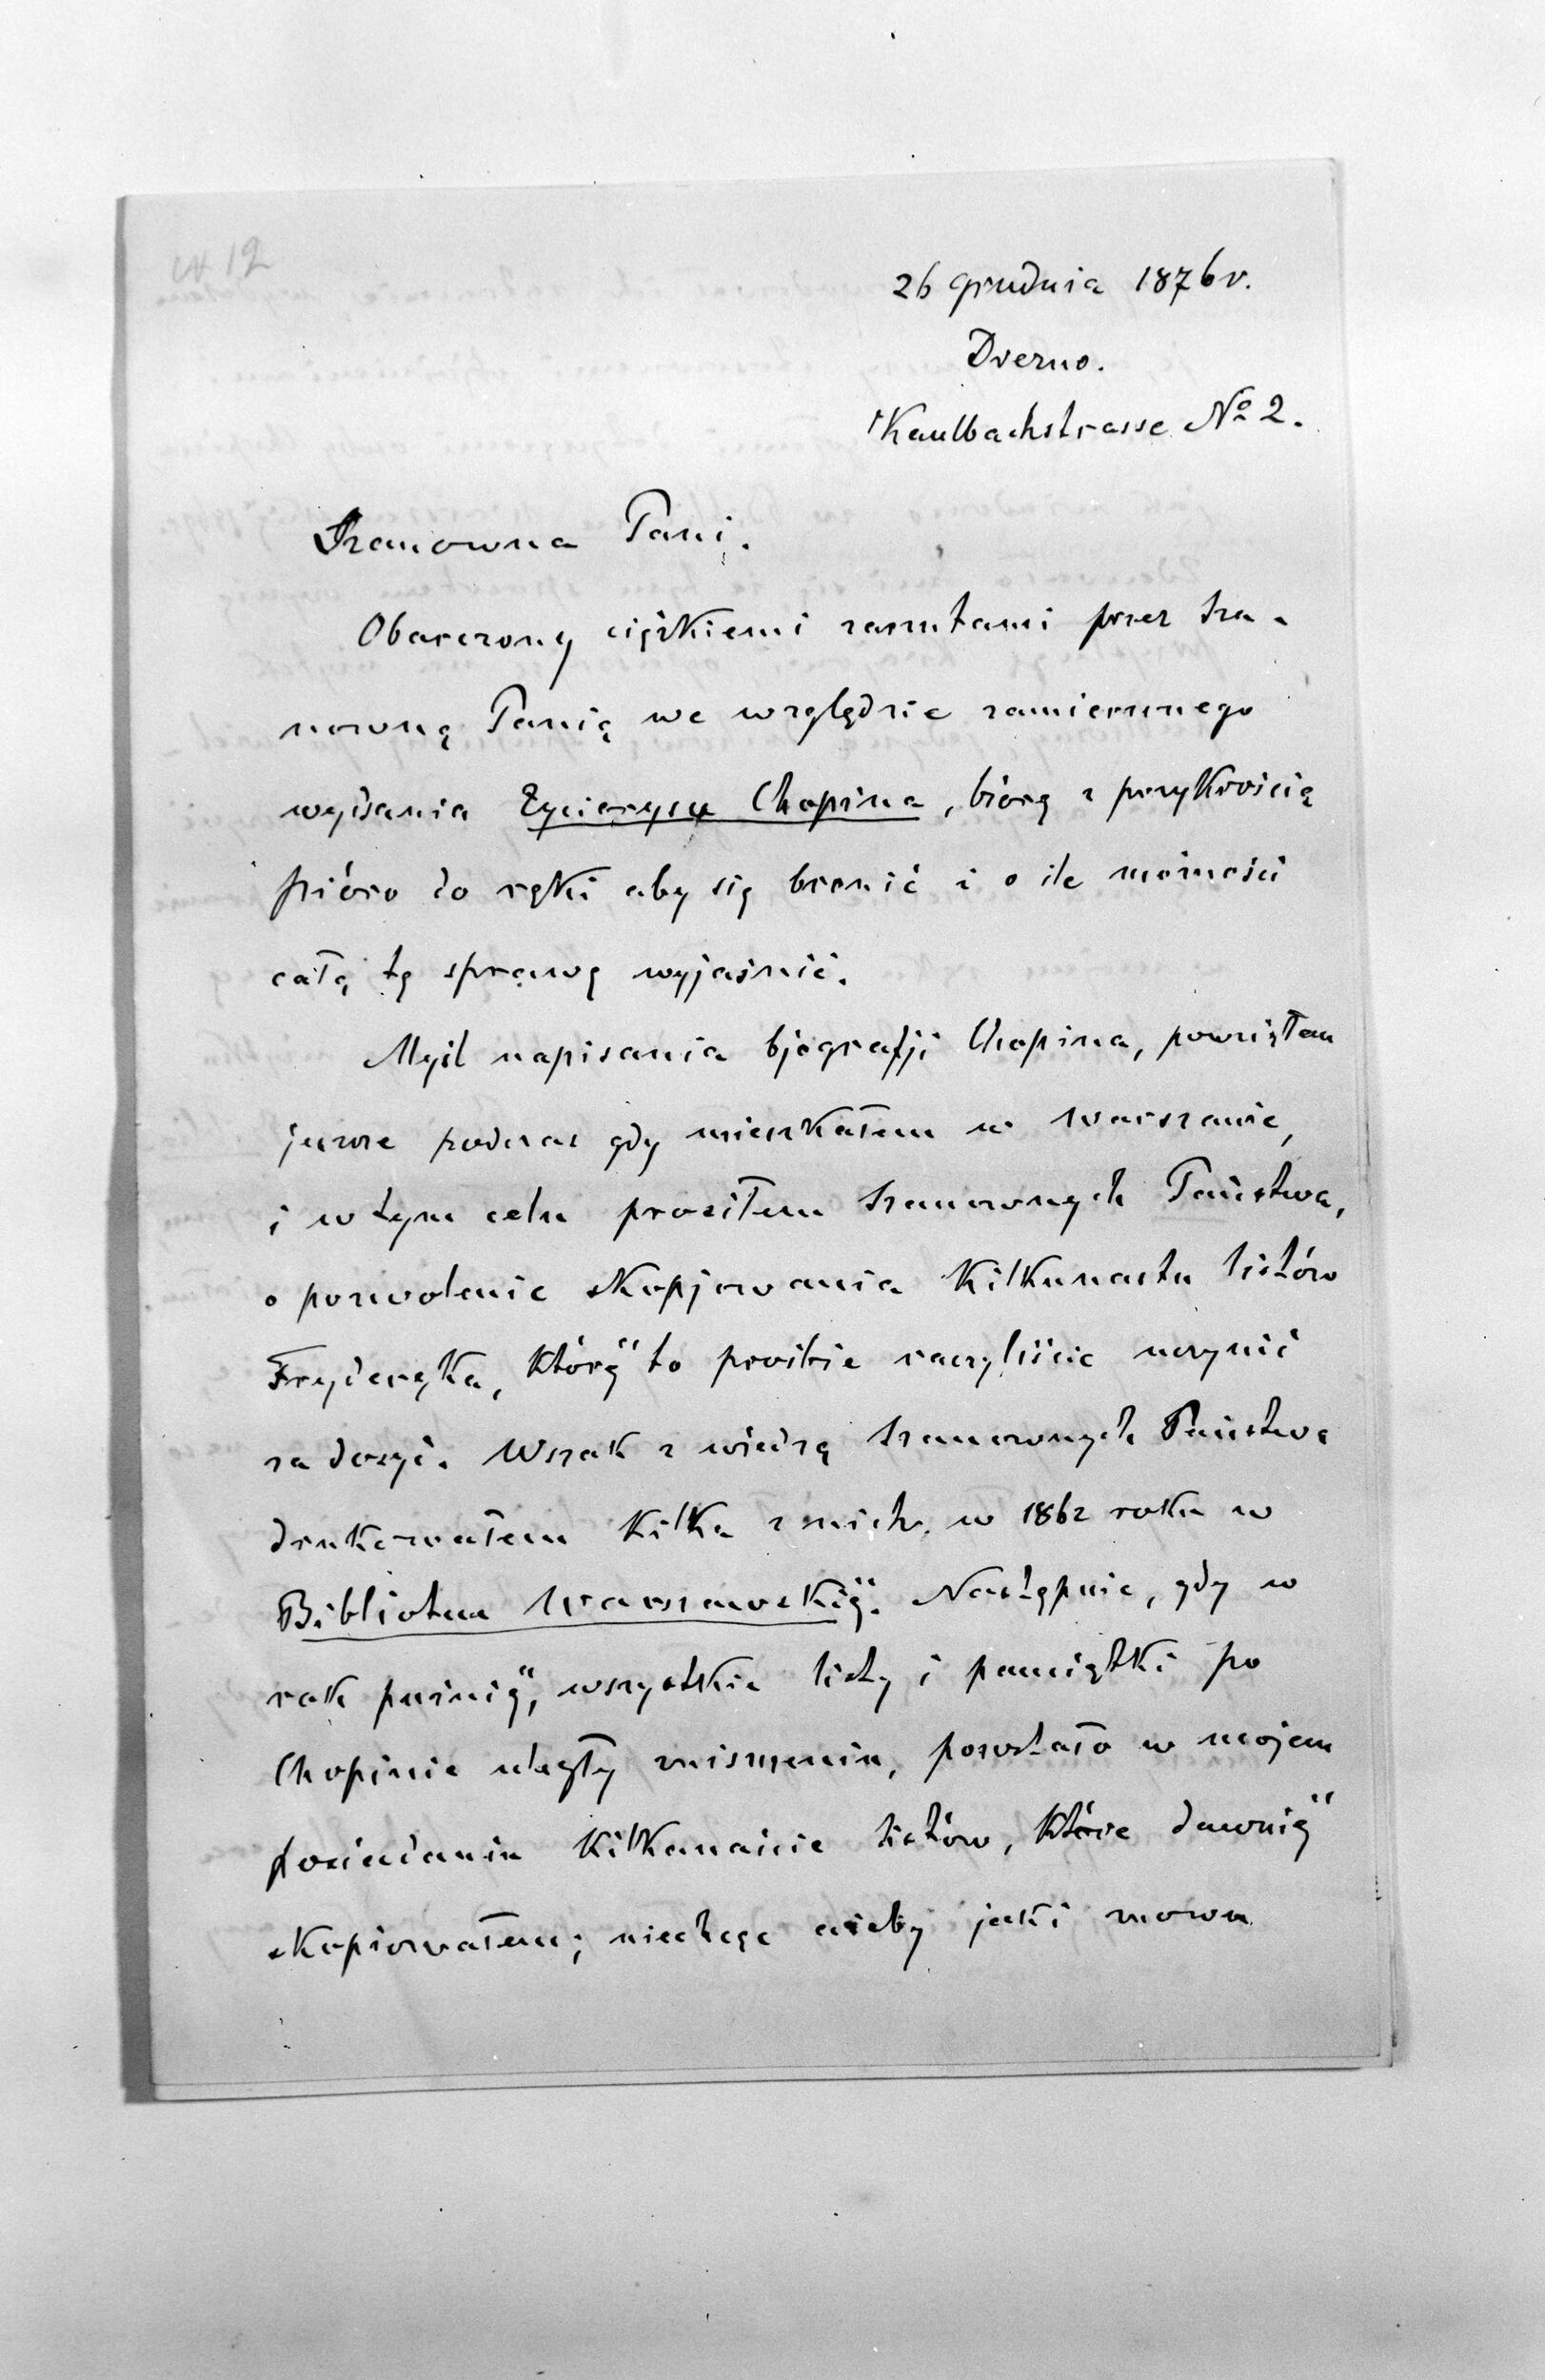 W 12
26 grudnia 1876 r.
Drezno.
Kaulbachstrasse No 2.
Szanowna Pani.
Obarczony ciężkiemi zarzutami przez sza-
nowną Panią we względzie zamierzonego
wydania Życiorysu Chopina, biorę z przykrością
pióro do ręki aby się bronić i o ile możności
całą tę sprawę wyjaśnić.
Myśl napisania bjografji Chopina, powziąłem
jeszcze podczas gdy mieszkałem w Warszawie,
i w tym celu prosiłem Szanownych Państwa,
o pozwolenie skopjowania kilkunastu listów
Fryderyka, któréj to prośbie raczyliście uczynić
zadosyć. Wszak z wiedzą Szanownych Państwa
drukowałem kilka z nich w 1862 roku w
Bibliotece Warszawskiéj. Następnie, gdy w
rok późniéj, wszystkie listy i pamiątki po
Chopinie uległy zniszczeniu, pozostało w mojem
posiadaniu kilkanaście listów, które dawniéj
skopiowałem; niechcąc ażeby jaki znowu